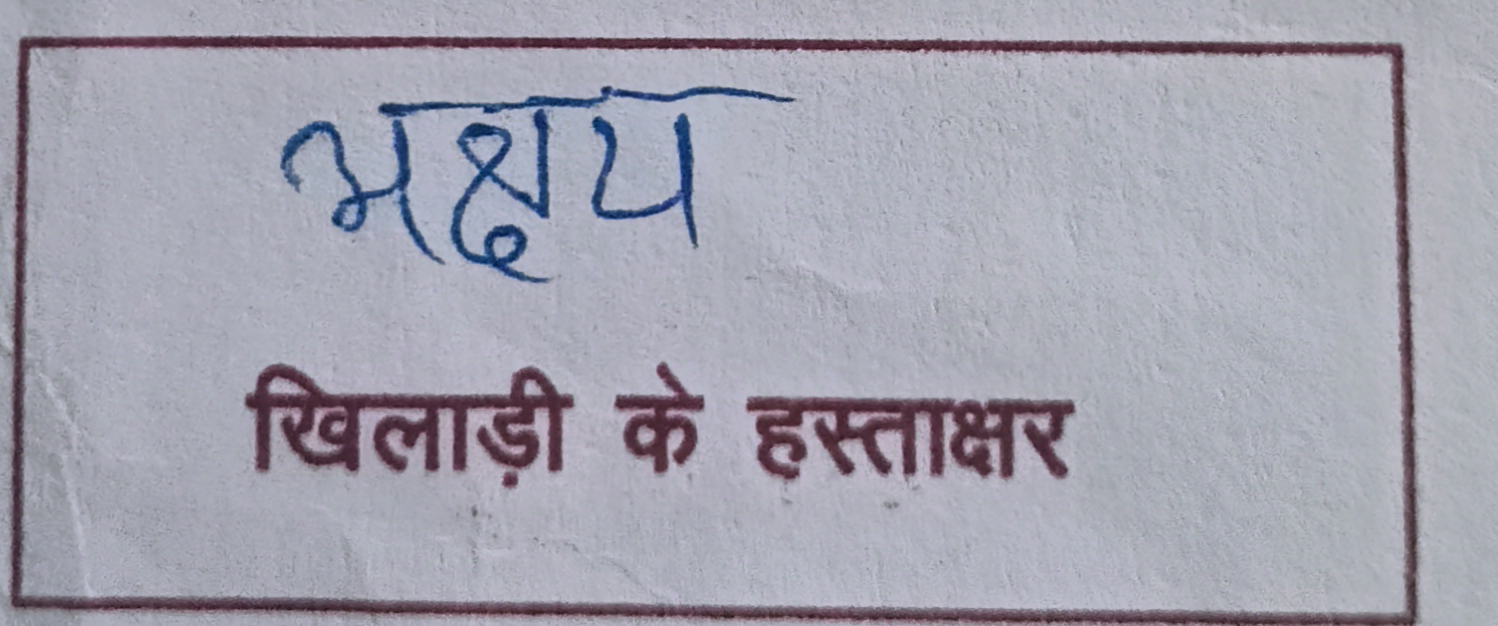 अक्षय
खिलाड़ी के हस्ताक्षर